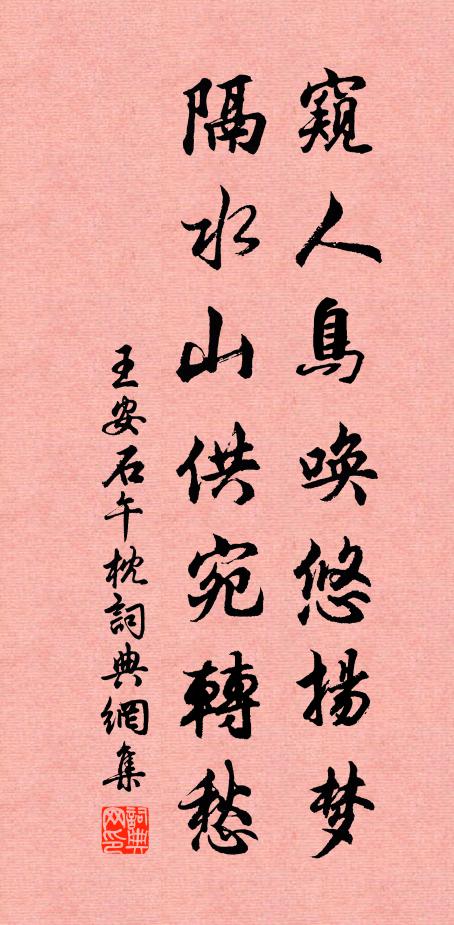 窺人鳥喚悠揚梦
隔水山供宛轉愁
王安石午枕詞典網集
詞典网印